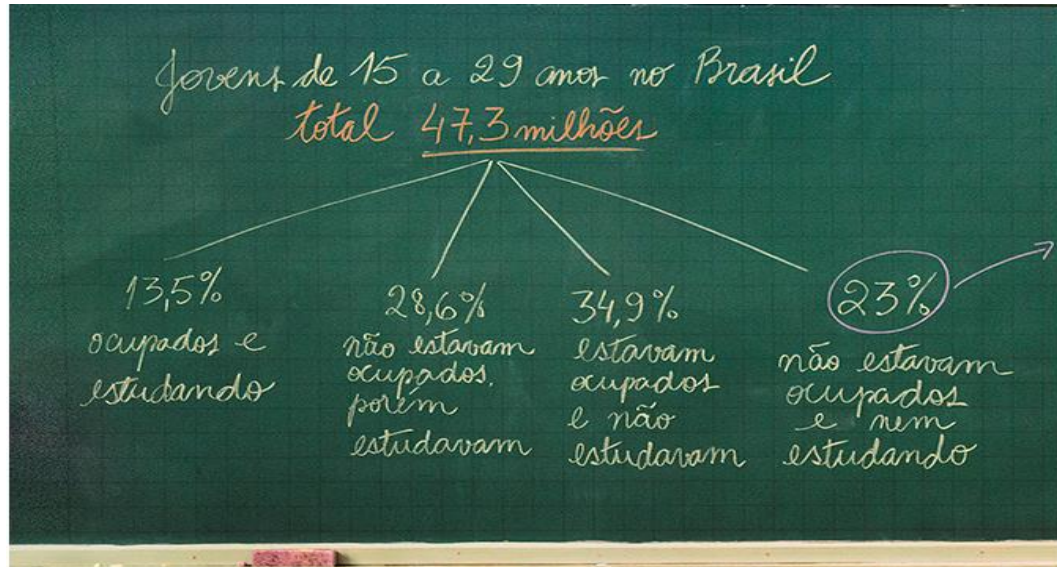 Jovens de 15 a 29 anos no Brasil
total 47,3 milhões
13,5%
ocupados e
estudando
28,6%
não estavam
ocupados,
porém
estudavam
34,9%
estavam
ocupados
e não
estudavam
23%
não estavam
ocupados
e nem
estudando